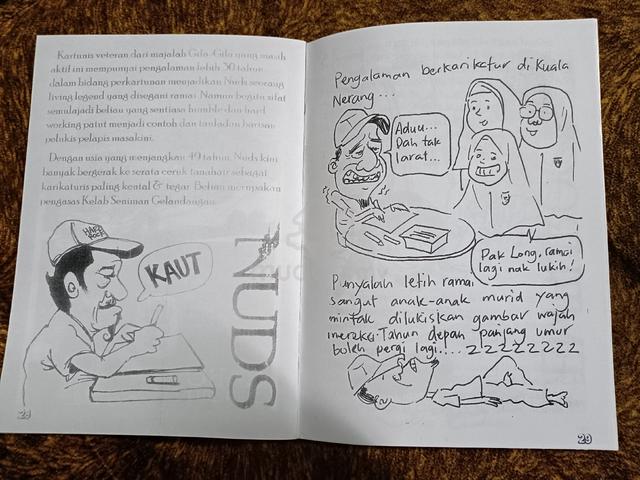 Kartunis veteran dari majalah Gila-Gila yang masih
aktif ini mempunyai pengalaman lebih 30 tahun
dalam bidang perkartunan menjadikan Nuds seorang
living legend yang disegani ramai. Namun begitu sifat
semulajadi beliau yang sentiasa humble dan hard
working patut menjadi contoh dan tauladan barisan
pelukis pelapis masakini.
Dengan usia yang menjangkau 49 tahun, Nuds kini
banyak bergerak ke serata ceruk tanahair sebagai
karikaturis paling kental & tegar. Beliau merupakan
pengasas Kelab Seniman Gelandangan.
HARD
ROCK
KAUT
NUDS
28
Pengalaman berkarikatur di Kuala
Nerang...
Aduu...
Dah tak
larat...
Pak Long, ramai
lagi nak lukih!
Punyalah letih ramai
sangat anak-anak murid yang
mintak dilukiskan gambar wajah
mereka. Tahun depan panjang umur
boleh pergi lagi.... zzzzzzzzz
29